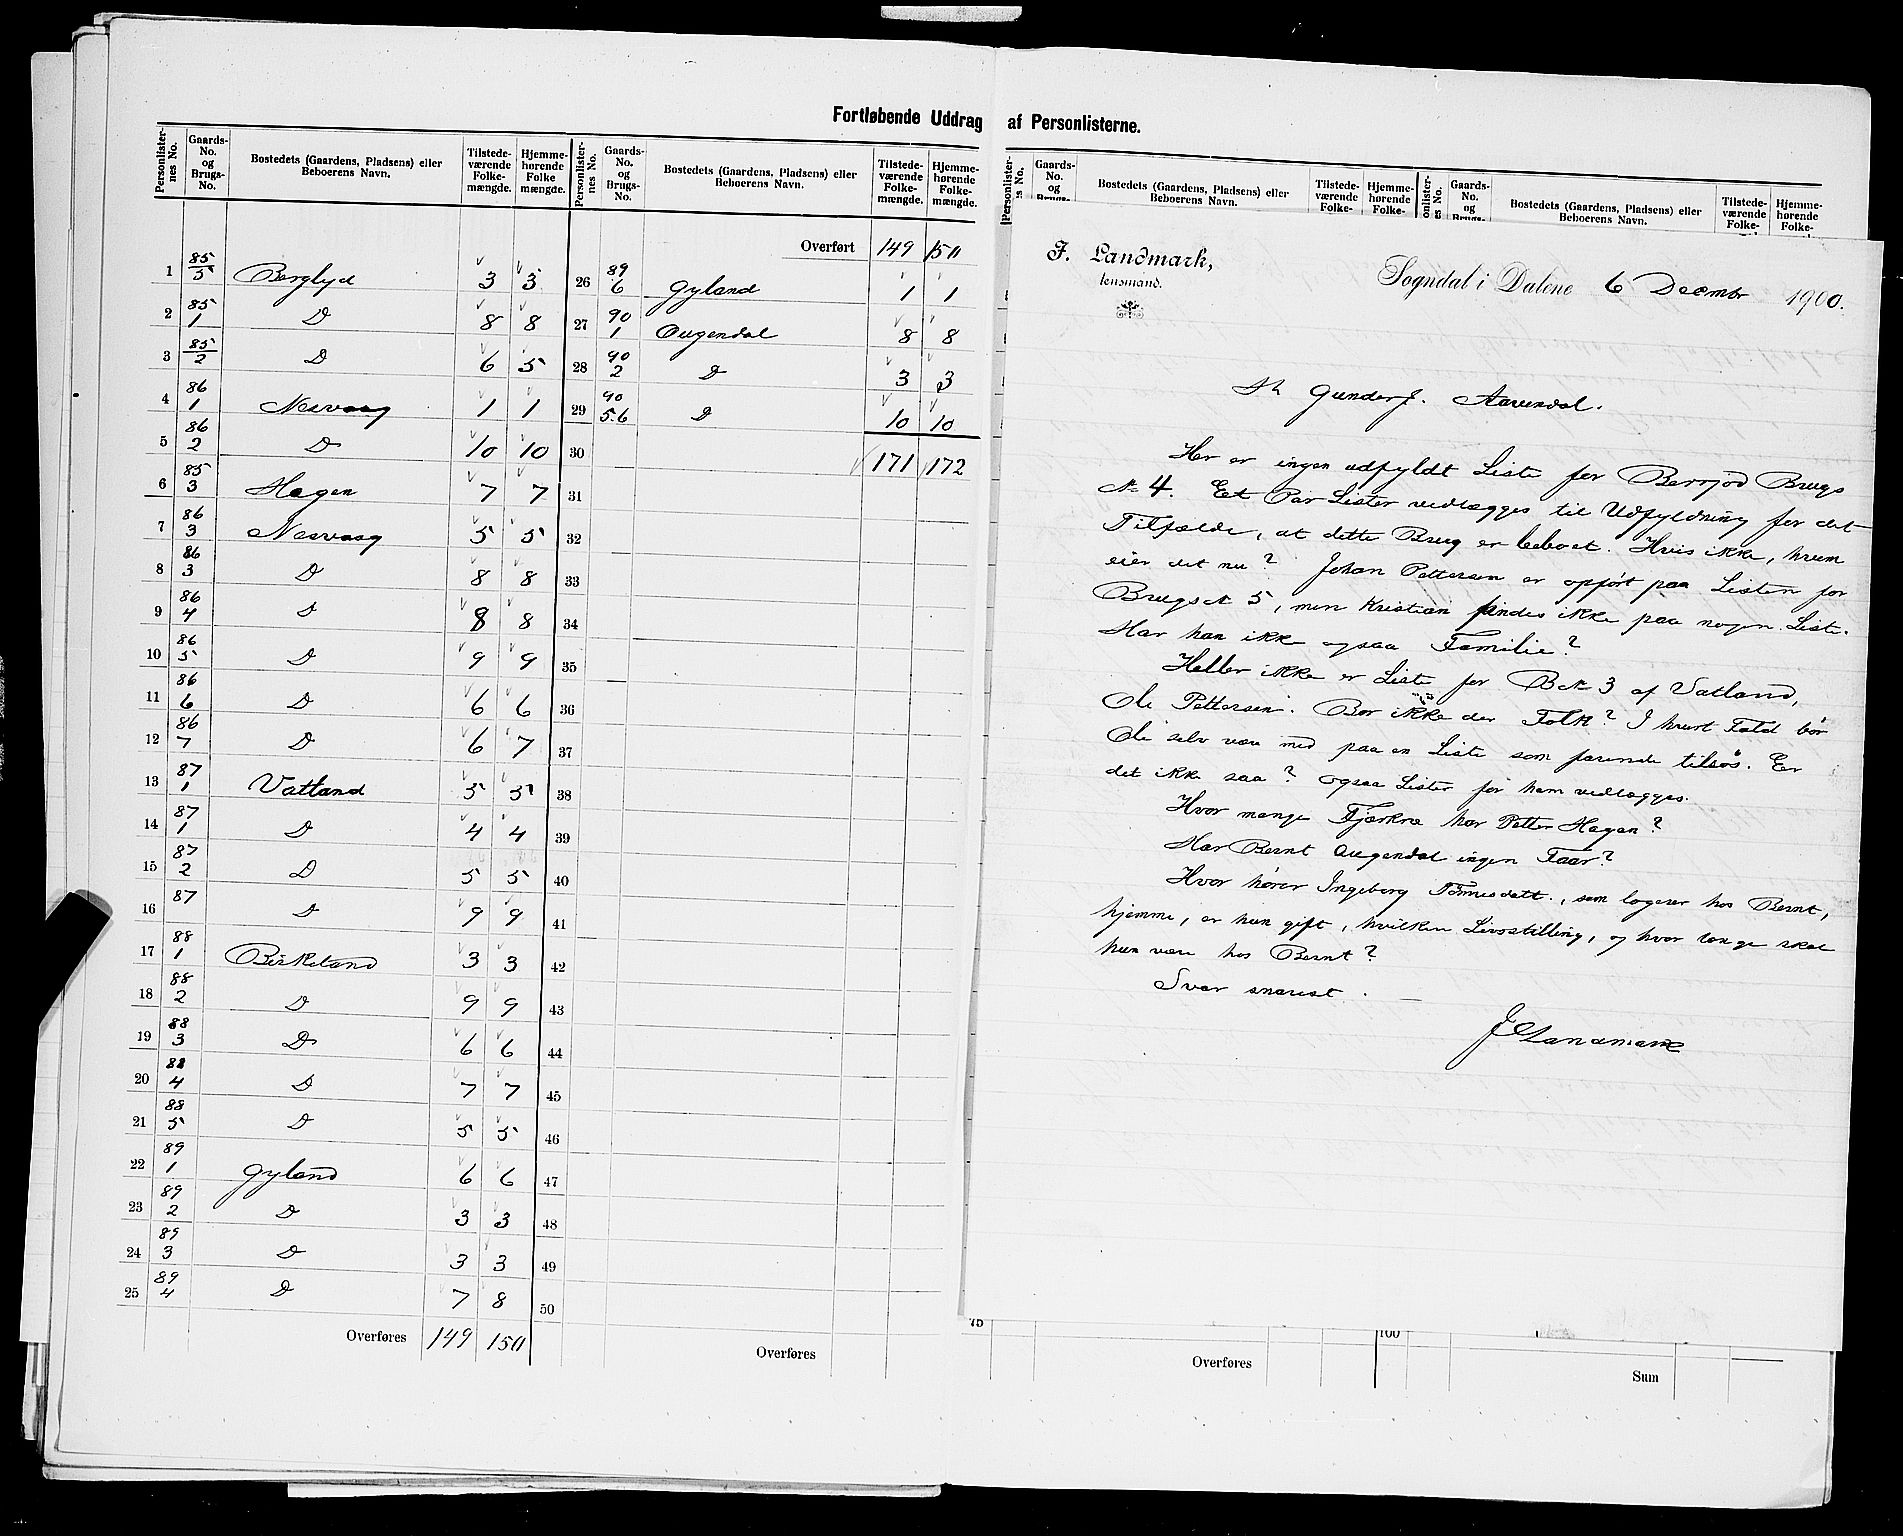 Fortløbende Uddrag af Personlisterne.
Personlisternes No. Gaards-No. og Brugs-No. Bostedets (Gaardens, Pladsens) eller Beboerens Navn. Tilstedeværende Folkemængde. Hjemmehørende Folkemængde.
1 85/5 Bergljd 3 3
2 85/1 D 8 8
3 85/2 D 6 5
4 86/1 Nesvaag 1 1
5 86/2 D 10 10
6 85/3 Hagen 7 7
7 86/3 Nesvaag 5 5
8 86/3 D 8 8
9 86/4 D 8 8
10 86/5 D 9 9
11 86/6 D 6 6
12 86/7 D 6 7
13 87/1 Vatland 5 5
14 87/1 D 4 4
15 87/2 D 5 5
16 87 D 9 9
17 88/1 Birkeland 3 3
18 88/2 D 9 9
19 88/3 D 6 6
20 88/4 D 7 7
21 88/5 D 5 5
22 89/1 Gyland 6 6
23 89/2 D 3 3
24 89/3 D 3 3
25 89/4 D 7 8
Overføres 149 150
Personlisternes No. Gaards-No. og Brugs-No. Bostedets (Gaardens, Pladsens) eller Beboerens Navn. Tilstedeværende Folkemængde. Hjemmehørende Folkemængde.
Overført 149 150
26 89/6 Gyland 1 1
27 90/1 Ougendal 8 8
28 90/2 D 3 3
29 90/5.6 D 10 10
30 171 172
31
32
33
34
35
36
37
38
39
40
41
42
43
44
45
46
47
48
49
50
Overføres
Personlisternes No. Gaards-No. og Brugs- Bostedets (Gaardens, Pladsens) eller Beboerens Navn. Tilstedeværende Folke- Hjemmehørende Folke-
Gaards-No. og Brugs- Bostedets (Gaardens, Pladsens) eller Beboerens Navn. Tilstedeværende Folke- Hjemmehørende Folke-
F. Landmark,
lensmand.
Sogndal i Dalene 6 Decembr 1900.
Hr Gunder J. Aavendal.
Her er ingen udfyldt Liste for Bergjød Brugs
No 4. Et Par Lister vedlægges til Udfyldning for det
Tilfælde, at dette Brug er beboet. Hvis ikke, hvem
eier det nu? Johan Pettersen er opført paa Listen for
Brugs No 5, men Kristian findes ikke paa nogen Liste.
Har han ikke ogsaa Familie?
Heller ikke er Liste for B No 3 af Vatland,
Ole Pettersen. Bor ikke der Folk? I hvert Fald bør
Ole selv være med paa en Liste som farende tilsøs. Er
det ikke saa? Ogsaa Lister for ham vedlægges.
Hvor mange Fjærkræ har Petter Hagen?
Har Bernt Augendal ingen Faar?
Hvor hører Ingeborg Tønnesdatt., som logerer hos Bernt,
hjemme, er hun gift, hvilken Livsstilling, og hvor længe skal
hun være hos Bernt?
Svar snarest.
J Landmark
75
100
Overføres
Sum